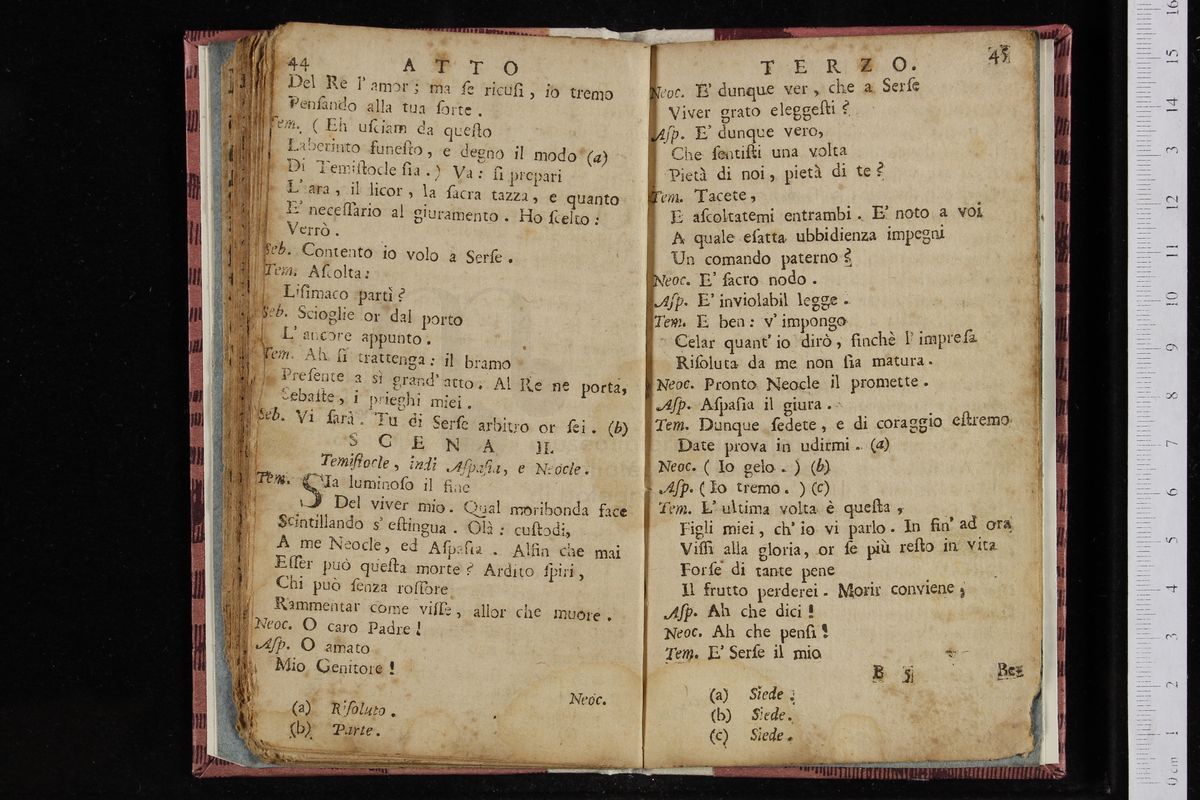 44 ATTO
Del Re l'amor; ma ſe ricuſi, io tremo
Penſando alla tua ſorte.
Tem. (Eh uſciam da queſto
Laberinto funeſto, e degno il modo (a)
Di Temiſtocle ſia.) Va: ſi prepari
L'ara, il licor, la ſacra tazza, e quanto
E' neceſſario al giuramento. Ho ſcelto:
Verrò.
Seb. Contento io volo a Serſe.
Tem. Aſcolta:
Liſimaco partì?
Seb. Scioglie or dal porto
L'ancore appunto.
Tem. Ah ſi trattenga: il bramo
Preſente a sì grand'atto. Al Re ne porta,
Sebaſte, i prieghi miei.
Seb. Vi ſarà. Tu di Serſe arbitro or ſei. (b)
SCENA II.
Temiſtocle, indi Aſpaſia, e Neocle.
Tem. SIa luminoſo il fine
Del viver mio. Qual moribonda face
Scintillando s'eſtingua. Olà: cuſtodi,
A me Neocle, ed Aſpaſia. Alfin che mai
Eſſer può queſta morte? Ardito ſpiri,
Chi può ſenza roſſore
Rammentar come viſſe, allor che muore.
Neoc. O caro Padre!
Aſp. O amato
Mio Genitore!
Neoc.
(a) Riſoluto.
(b) Parte.
TERZO. 45
Neoc. E' dunque ver, che a Serſe
Viver grato eleggeſti?
Aſp. E' dunque vero,
Che ſentiſti una volta
Pietà di noi, pietà di te?
Tem. Tacete,
E aſcoltatemi entrambi. E' noto a voi
A quale eſatta ubbidienza impegni
Un comando paterno?
Neoc. E' ſacro nodo.
Aſp. E' inviolabil legge.
Tem. E ben: v'impongo
Celar quant'io dirò, finchè l'impreſa
Riſoluta da me non ſia matura.
Neoc. Pronto Neocle il promette.
Aſp. Aſpaſia il giura.
Tem. Dunque ſedete, e di coraggio eſtremo
Date prova in udirmi. (a)
Neoc. (Io gelo.) (b)
Aſp. (Io tremo.) (c)
Tem. L'ultima volta è queſta,
Figli miei, ch'io vi parlo. In fin'ad ora
Viſſi alla gloria, or ſe più reſto in vita
Forſe di tante pene
Il frutto perderei. Morir conviene;
Aſp. Ah che dici!
Neoc. Ah che penſi!
Tem. E' Serſe il mio
B 5 Be-
(a) Siede.
(b) Siede.
(c) Siede.
16
15
14
13
12
11
10
9
8
7
6
5
4
3
2
1
0 cm